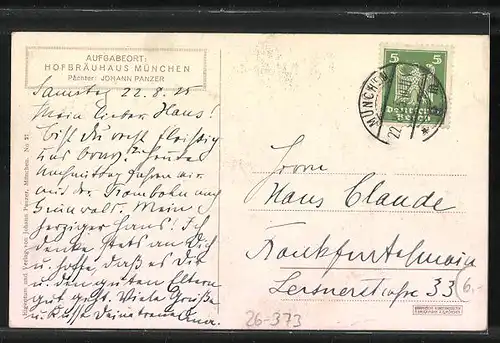 AUFGABEORT:
HOFBRÄUHAUS MÜNCHEN
Pächter: JOHANN PANZER
Samstag 22.8.25
Mein lieber Hans!
Bist Du recht fleißig
und brav? Heute
Nachmittag fahren wir
mit der Trambahn nach
Grünwald. Mein
herziger Hans! Ich
denke stets an Dich
u. hoffe, daß es Dir
u. den guten Eltern
gut geht. Viele Grüße
u. Küsse Deine
Eigentum und Verlag von Johann Panzer, München. No. 37.
5 5
Deutsches
Reich
MÜNCHEN
22.
Herrn
Hans Claude
Frankfurt a/Main
Lersnerstraße 33
6.-
26-373